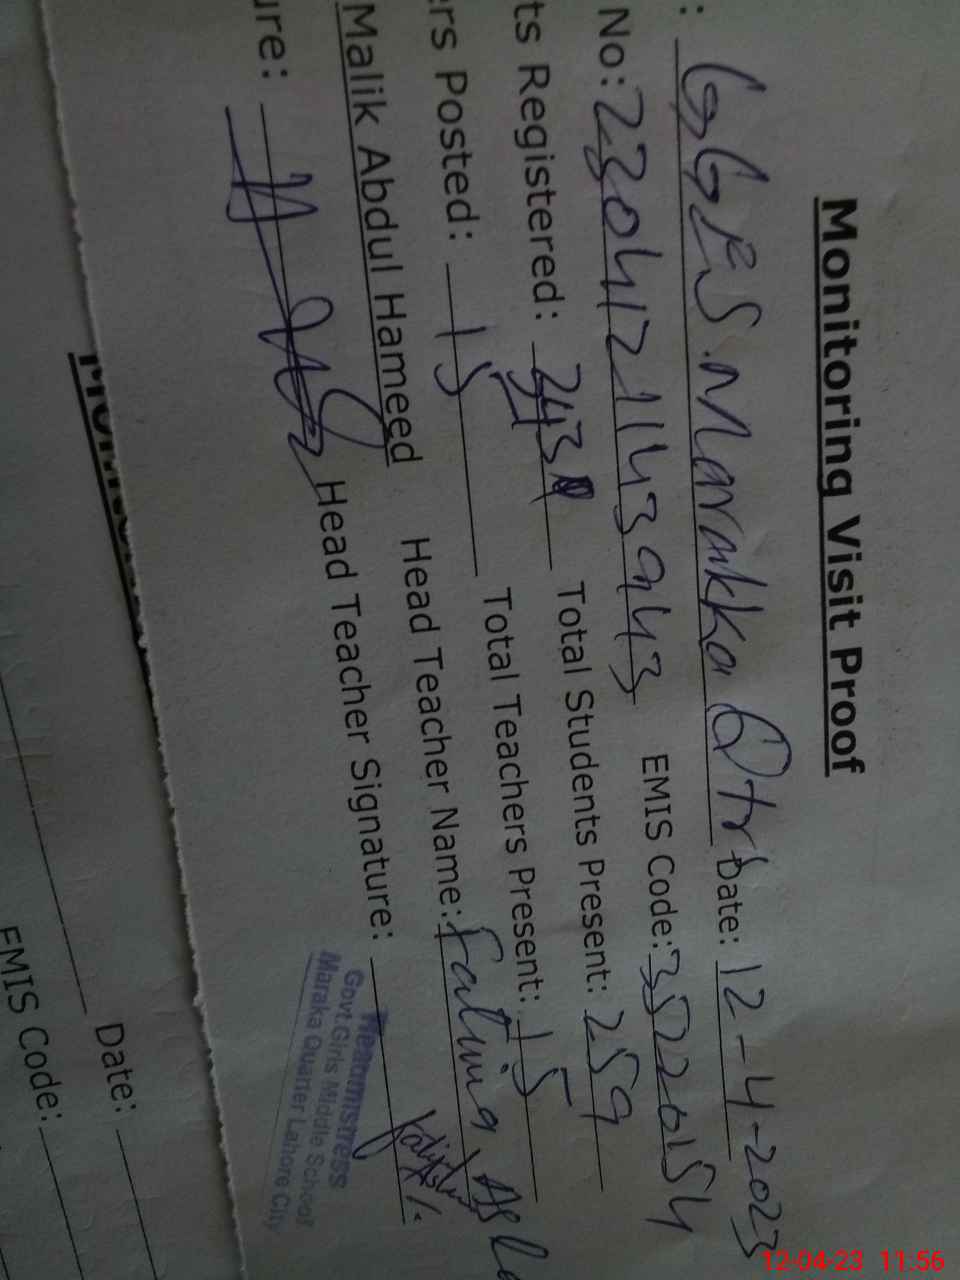 Monitoring Visit Proof
: GGES. Marakka Qtr Date: 12-4-2023
No: 2304121143943 EMIS Code: 35220154
ts Registered: 243 Total Students Present: 259
ers Posted: 15 Total Teachers Present: 15
Malik Abdul Hameed Head Teacher Name: Fatima Asla
ure: Head Teacher Signature:
Headmistress
Govt. Girls Middle School
Maraka Quarter Lahore City
Date:
EMIS Code:
12-04-23 11:56